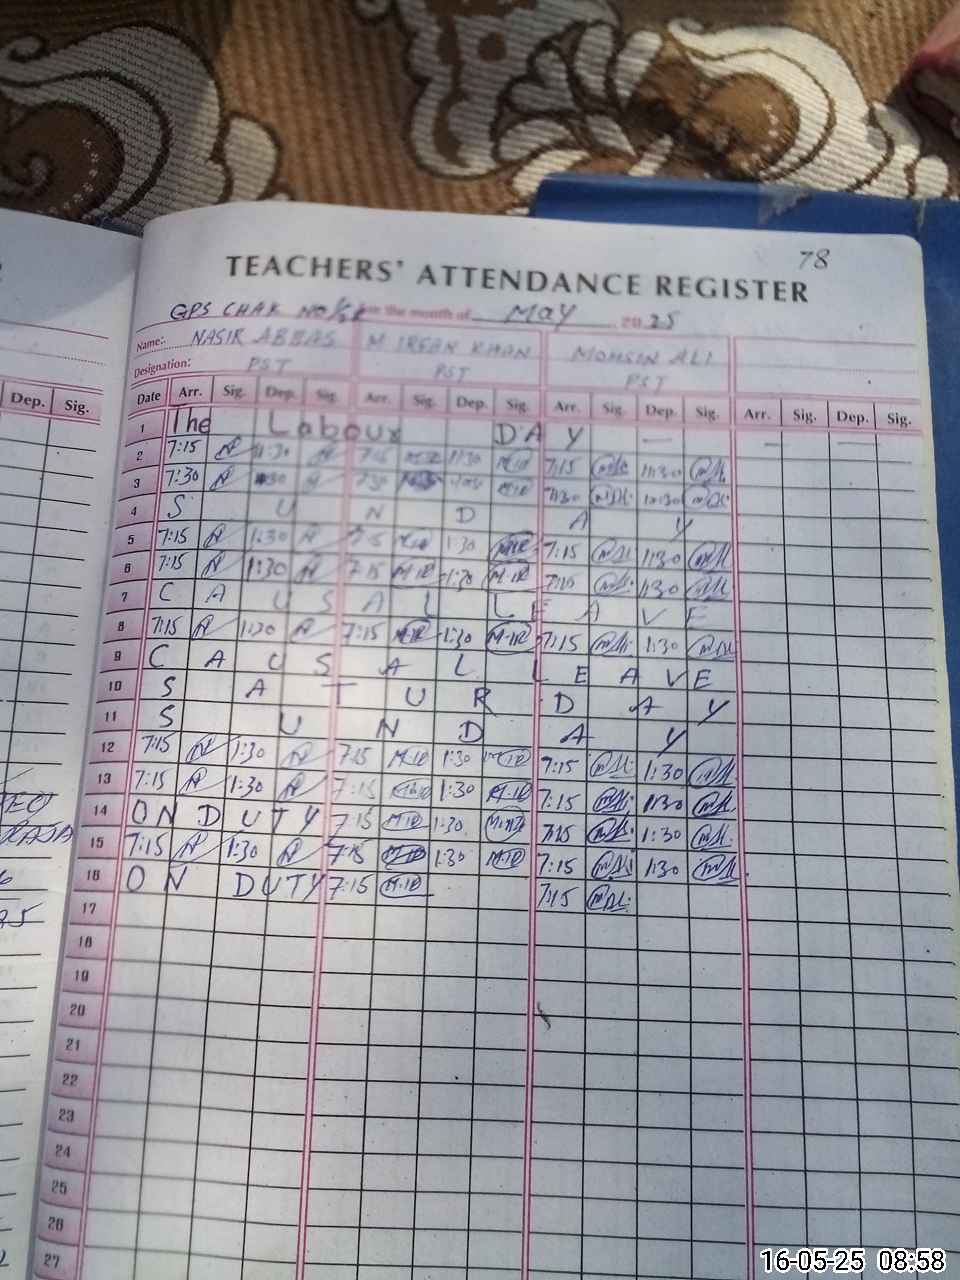 78
TEACHERS' ATTENDANCE REGISTER
GPS CHAK No/ for the month of May 2025
Name: NASIR ABBAS M IRFAN KHAN MOHSIN ALI
Designation: PST PST PST
Dep. Sig. Date Arr. Sig. Dep. Sig. Arr. Sig. Dep. Sig. Arr. Sig. Dep. Sig. Arr. Sig. Dep. Sig.
1 The Labour DAY
2 7:15 11:30 7:15 11:30 7:15 11:30
3 7:30 7:30
4 SUNDAY
5 7:15 1:30 1:30 7:15 1:30
6 7:15 1:30 7:15 M-IR 1:30 M-IR 7:15 1:30
7 CAUSAL LEAVE
8 7:15 1:30 7:15 M-IR 1:30 M-IR 7:15 1:30
9 CAUSAL LEAVE
10 SATURDAY
11 SUNDAY
12 7:15 1:30 7:15 M-IR 1:30 M-IR 7:15 1:30
13 7:15 1:30 7:15 1:30 M-IR 7:15 1:30
14 ON DUTY 7:15 M-IR 1:30 M-IR 7:15 1:30
15 7:15 1:30 7:15 1:30 M-IR 7:15 1:30
16 ON DUTY 7:15 M-IR 7:15
17
18
19
20
21
22
23
24
25
26
27
16-05-25 08:58